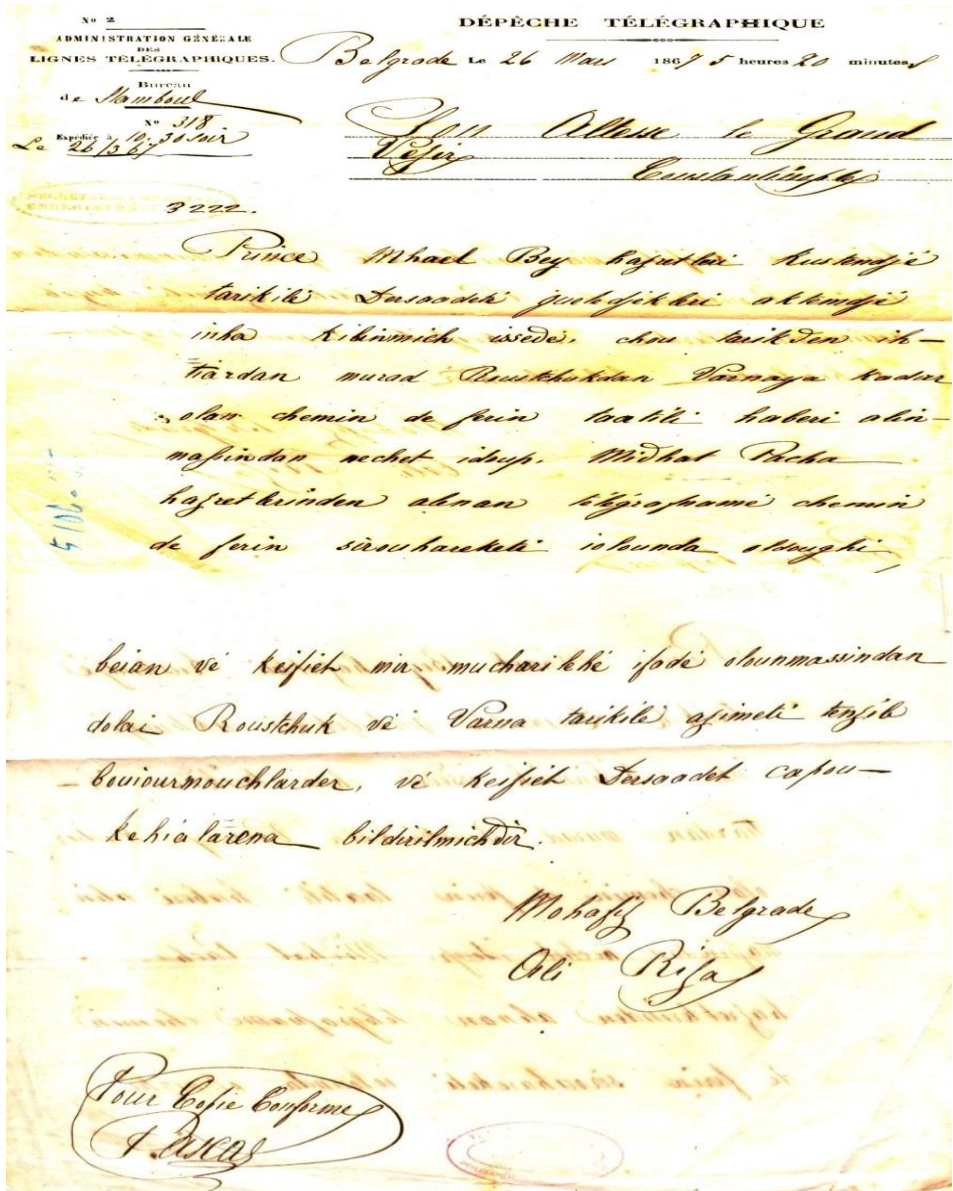 No 2
ADMINISTRATION GÉNÉRALE
DES
LIGNES TÉLÉGRAPHIQUES.
DÉPÊCHE TÉLÉGRAPHIQUE
Belgrade Le 26 Mars 1867 5 heures 20 minutes
Bureau
de Stamboul
No 318
Expédiée à 10,30 soir
Le 26/3 67
Son Altesse le Grand
Vésir
Constantinople
3222.
Prince Mhael Bey hazretleri Kustendjé
tarikilé Dersaadeté gueledjekleri aktemdjé
inha kilinmich issedé, chou tarikden ih-
tiardan murad Roustchukdan Varnaya kadar
olan chemin de ferin taatili haberi alin-
massindan nechet idup, Midhat Pacha
hazretlerinden alenan télégraphamé chemin
de ferin sirouhareketi iolounda oldoughi
beian vé keifiet mir mucharileihé ifadé olounmassindan
dolai Roustchuk vé Varna tarikilé azimeti tenzib
bouiourmouchlarder, vé keifiet Dersaadet capou-
kehialarena bildirilmichdir.
Mohafiz Belgrade
Ali Riza
Pour Copie Conforme